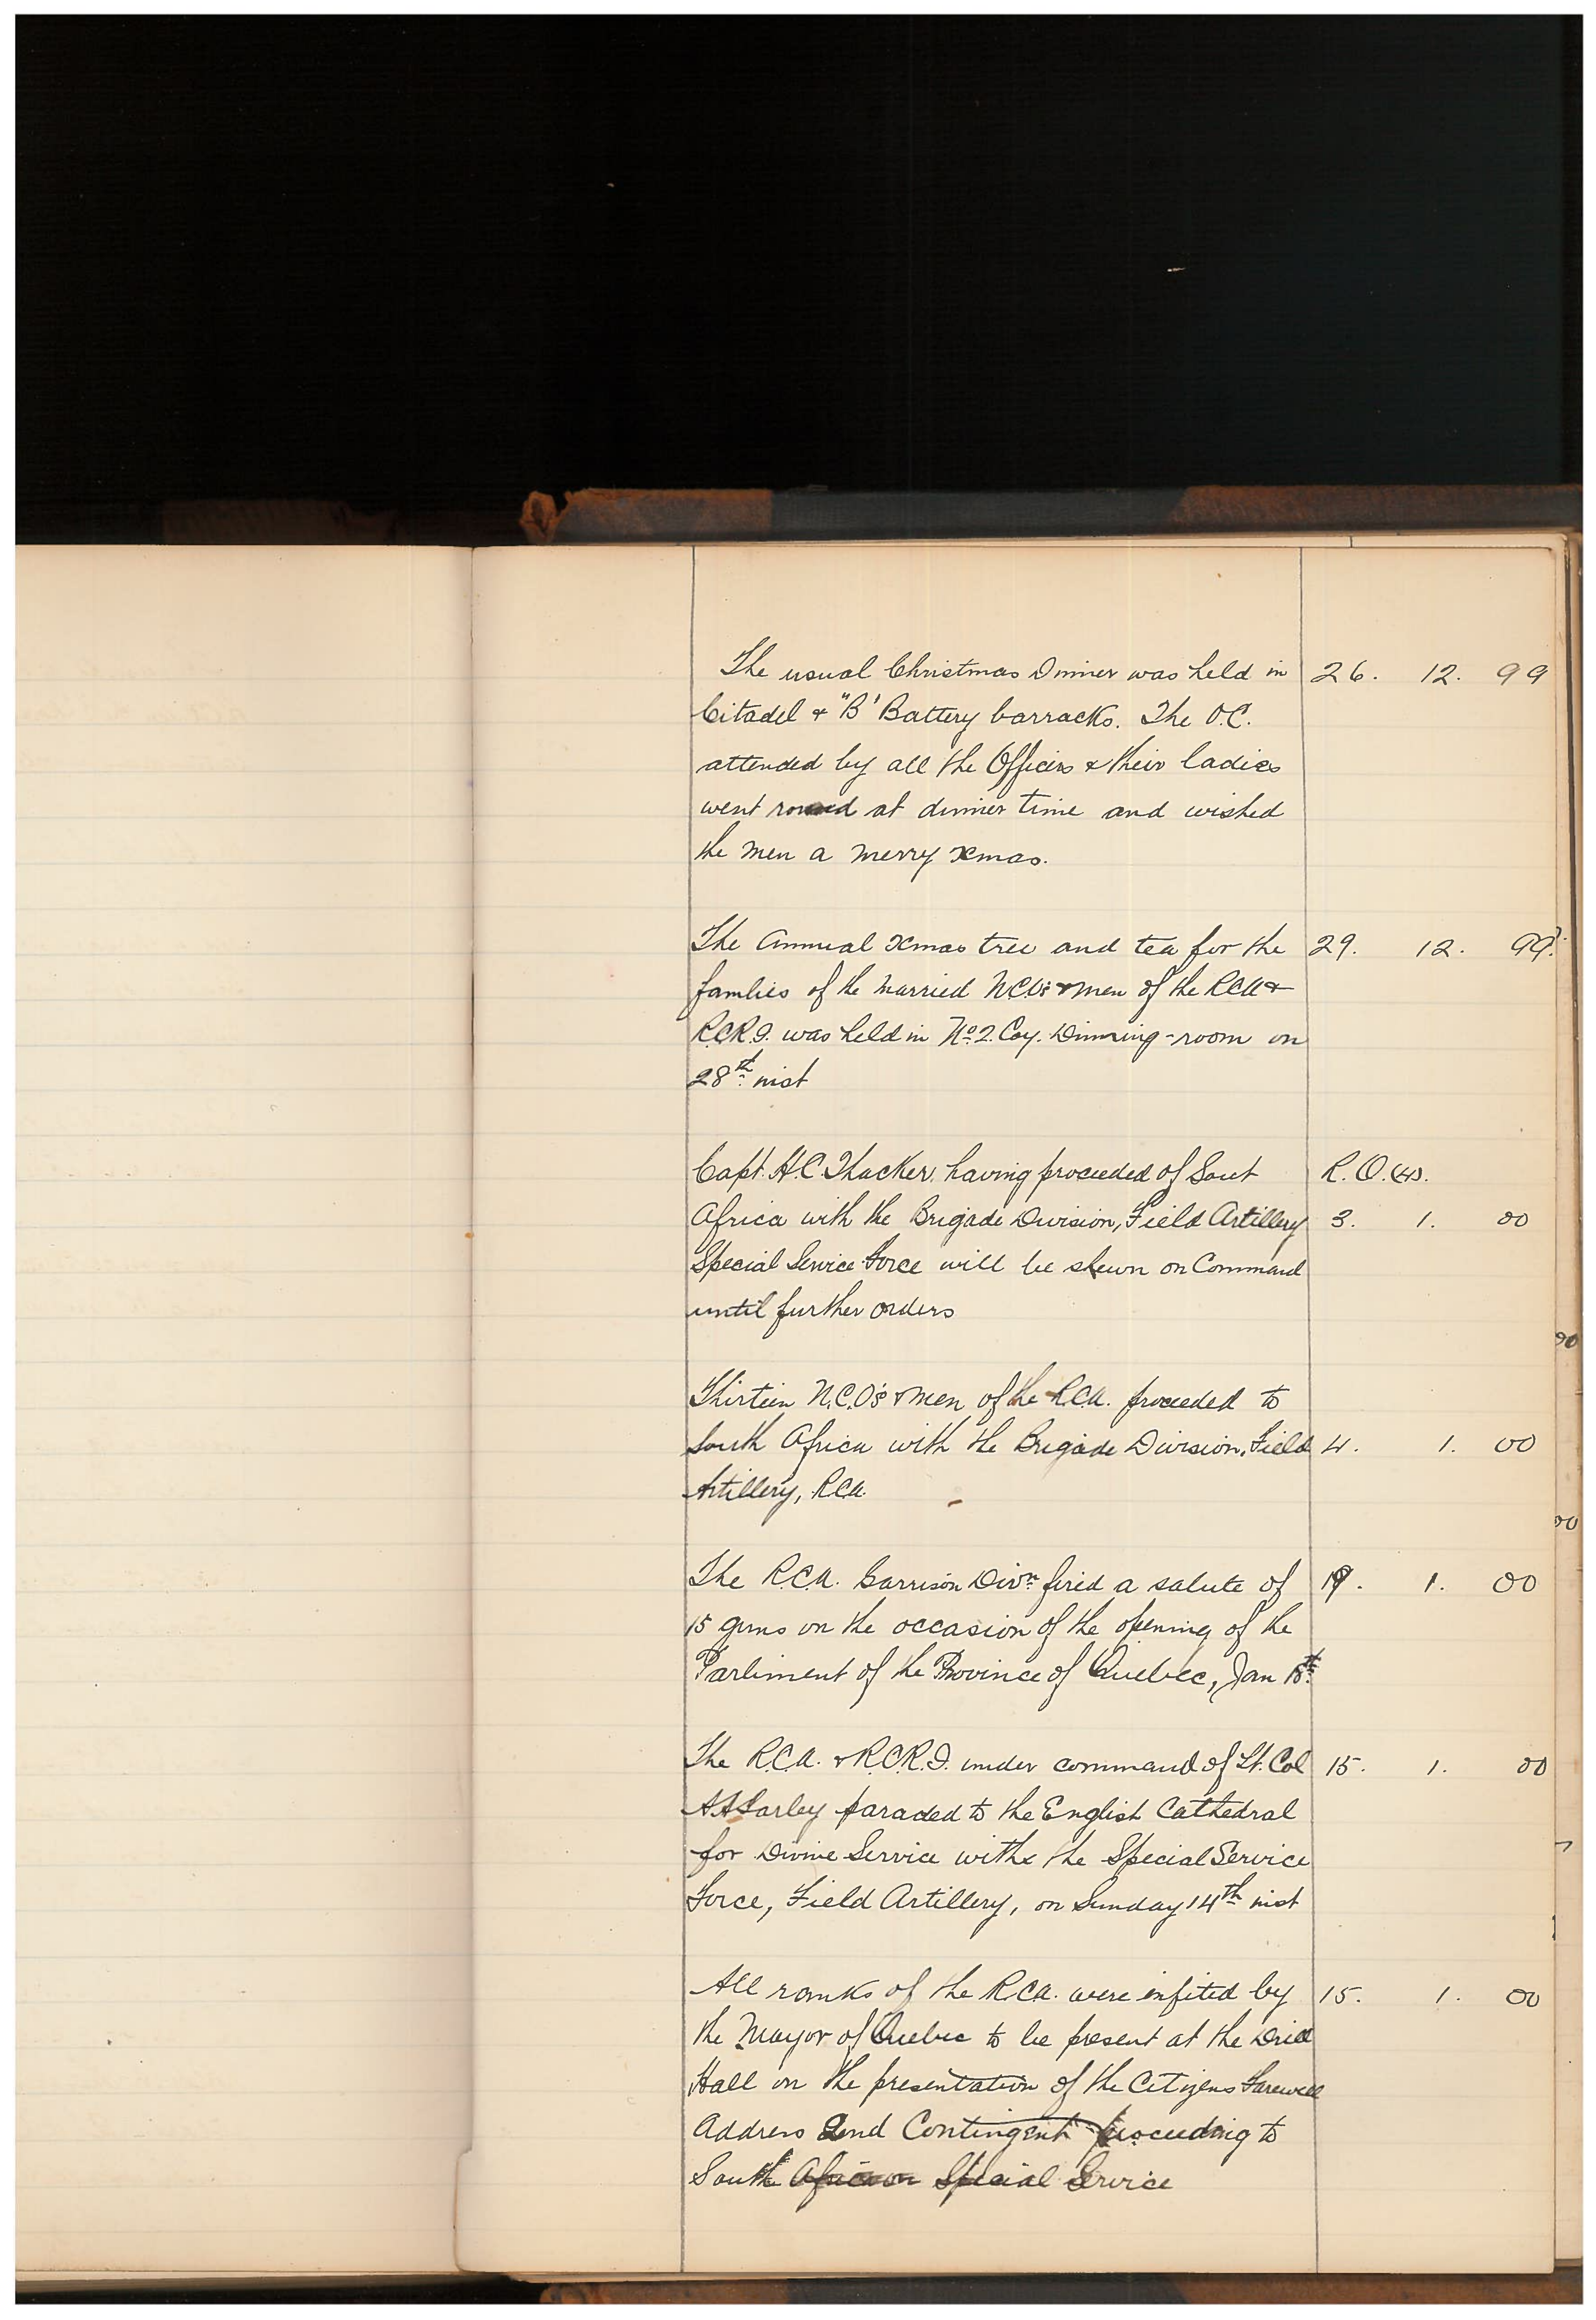 The usual Christmas Dinner was held in 26. 12. 99
Citadel & "B' Battery barracks. The O.C.
attended by all the Officers & their ladies
went round at dinner time and wished
the men a merry Xmas.
The Annual Xmas tree and tea for the 29. 12. 99.
families of the married NCO's & men of the RCA &
R.C.R.I. was held in No. 2. Coy. Dinning-room on
28th inst
Capt. H.C. Thacker, having proceeded of Sout R.O.
Africa with the Brigade Division, Field Artillery 3. 1. 00
Special Service Force will be shewn on Command
until further orders
Thirteen N.C.O's & men of the R.C.A. proceeded to
South Africa with the Brigade Division, Field 4. 1. 00
Artillery, RCA.
The R.C.A. Garrison Divn. fired a salute of 19. 1. 00
15 guns on the occasion of the opening of the
Parliment of the Province of Quebec, Jan 18th.
The R.C.A. & R.C.R.I. under command of Lt. Col 15. 1. 00
paraded to the English Cathedral
for Divine Service with the Special Service
Force, Field Artillery, on Sunday 14th inst
All ranks of the RCA. were infited by 15. 1. 00
the Mayor of Quebec to be present at the Drill
Hall on the presentation of the Citizens Farewell
Address 2nd Contingent proceeding to
South Africa on Special Service